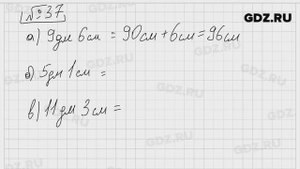 №37
GDZ.RU
а) 9дм 6см = 90см + 6см = 96см
б) 5дм 1см =
в) 11дм 3см =